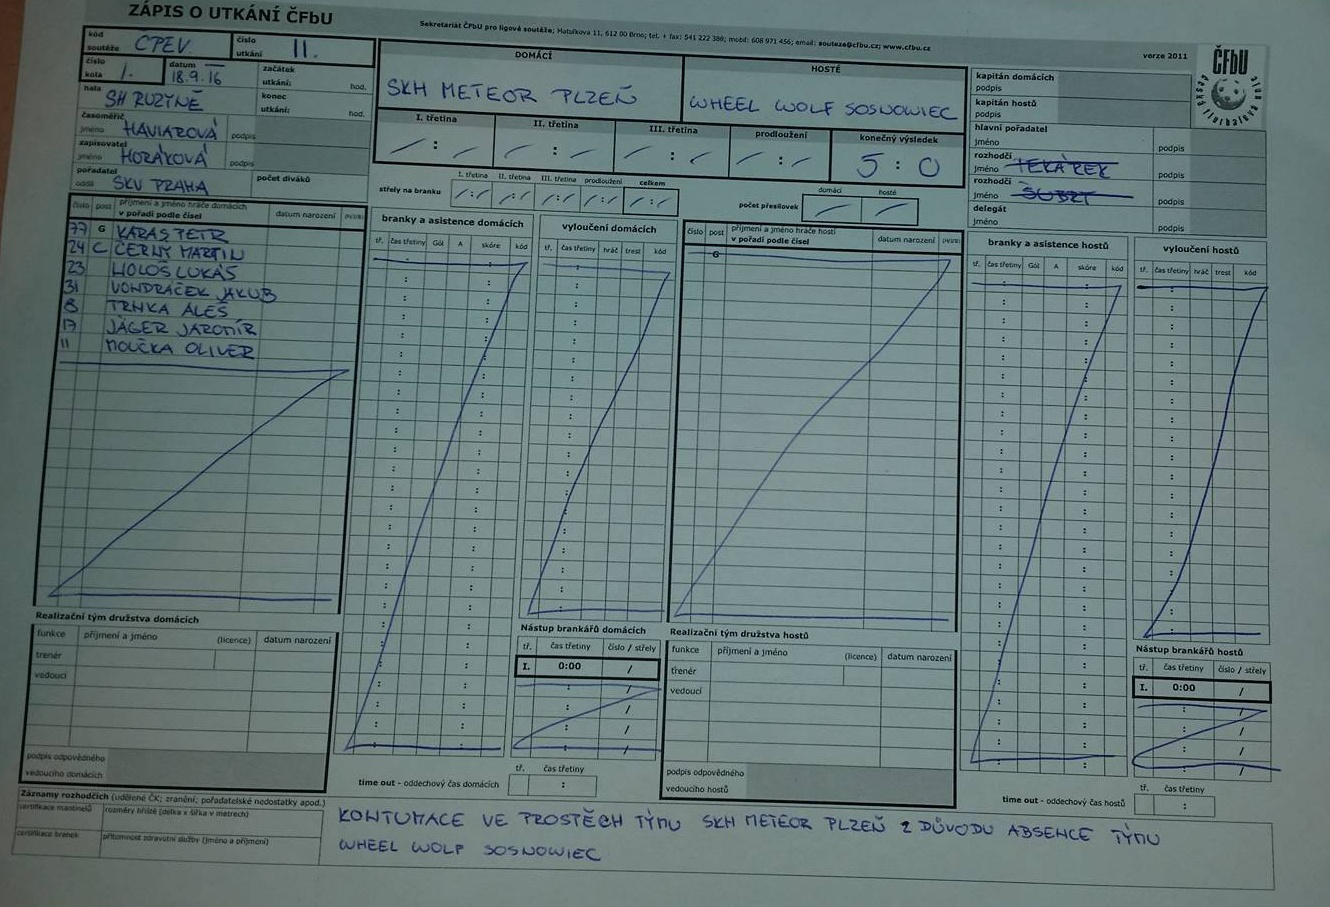 ZÁPIS O UTKÁNÍ ČFbU
Sekretariát ČFbU pro ligové soutěže; Hatulkova 11, 612 00 Brno; tel. + fax: 541 222 380; mobil: 608 971 456; email: souteze@cfbu.cz; www.cfbu.cz
verze 2011
ČFbU
kód soutěže CPEV
číslo utkání 11.
číslo kola 1.
datum 18.9.16
začátek utkání: hod.
hala SH RUZYNĚ
konec utkání: hod.
časoměřič jméno HAVIAROVÁ podpis
zapisovatel jméno HORÁKOVÁ podpis
pořadatel oddíl SKV PRAHA
počet diváků
DOMÁCÍ
SKH METEOR PLZEŇ
HOSTÉ
WHEEL WOLF SOSNOWIEC
I. třetina II. třetina III. třetina prodloužení konečný výsledek
: : : : 5 : 0
I. třetina II. třetina III. třetina prodloužení celkem
střely na branku
domácí hosté
počet přesilovek
kapitán domácích
podpis
kapitán hostů
podpis
hlavní pořadatel
jméno podpis
rozhodčí
jméno TEKÁREK podpis
rozhodčí
jméno ŠUBRT podpis
delegát
jméno podpis
číslo post příjmení a jméno hráče domácích v pořadí podle čísel datum narození
77 G KARAS PETR
24 C ČERNÝ MARTIN
23 HOLOŠ LUKÁŠ
31 VONDRÁČEK JAKUB
8 TRNKA ALEŠ
17 JÁGER JAROMÍR
11 MOUČKA OLIVER
branky a asistence domácích
tř. čas třetiny Gól A skóre kód
vyloučení domácích
tř. čas třetiny hráč trest kód
číslo post příjmení a jméno hráče hostí v pořadí podle čísel datum narození
G
branky a asistence hostů
tř. čas třetiny Gól A skóre kód
vyloučení hostů
tř. čas třetiny hráč trest kód
Realizační tým družstva domácích
funkce příjmení a jméno (licence) datum narození
trenér
vedoucí
podpis odpovědného
vedoucího domácích
Nástup brankářů domácích
tř. čas třetiny číslo / střely
I. 0:00 /
time out - oddechový čas domácích
tř. čas třetiny
:
Realizační tým družstva hostů
funkce příjmení a jméno (licence) datum narození
trenér
vedoucí
podpis odpovědného
vedoucího hostů
Nástup brankářů hostů
tř. čas třetiny číslo / střely
I. 0:00 /
time out - oddechový čas hostů
tř. čas třetiny
:
Záznamy rozhodčích (udělené ČK; zranění; pořadatelské nedostatky apod.)
certifikace mantinelů rozměry hřiště (délka x šířka v metrech)
certifikace branek přítomnost zdravotní služby (jméno a příjmení)
KONTUMACE VE PROSTĚCH TÝMU SKH METEOR PLZEŇ Z DŮVODU ABSENCE TÝMU
WHEEL WOLF SOSNOWIEC